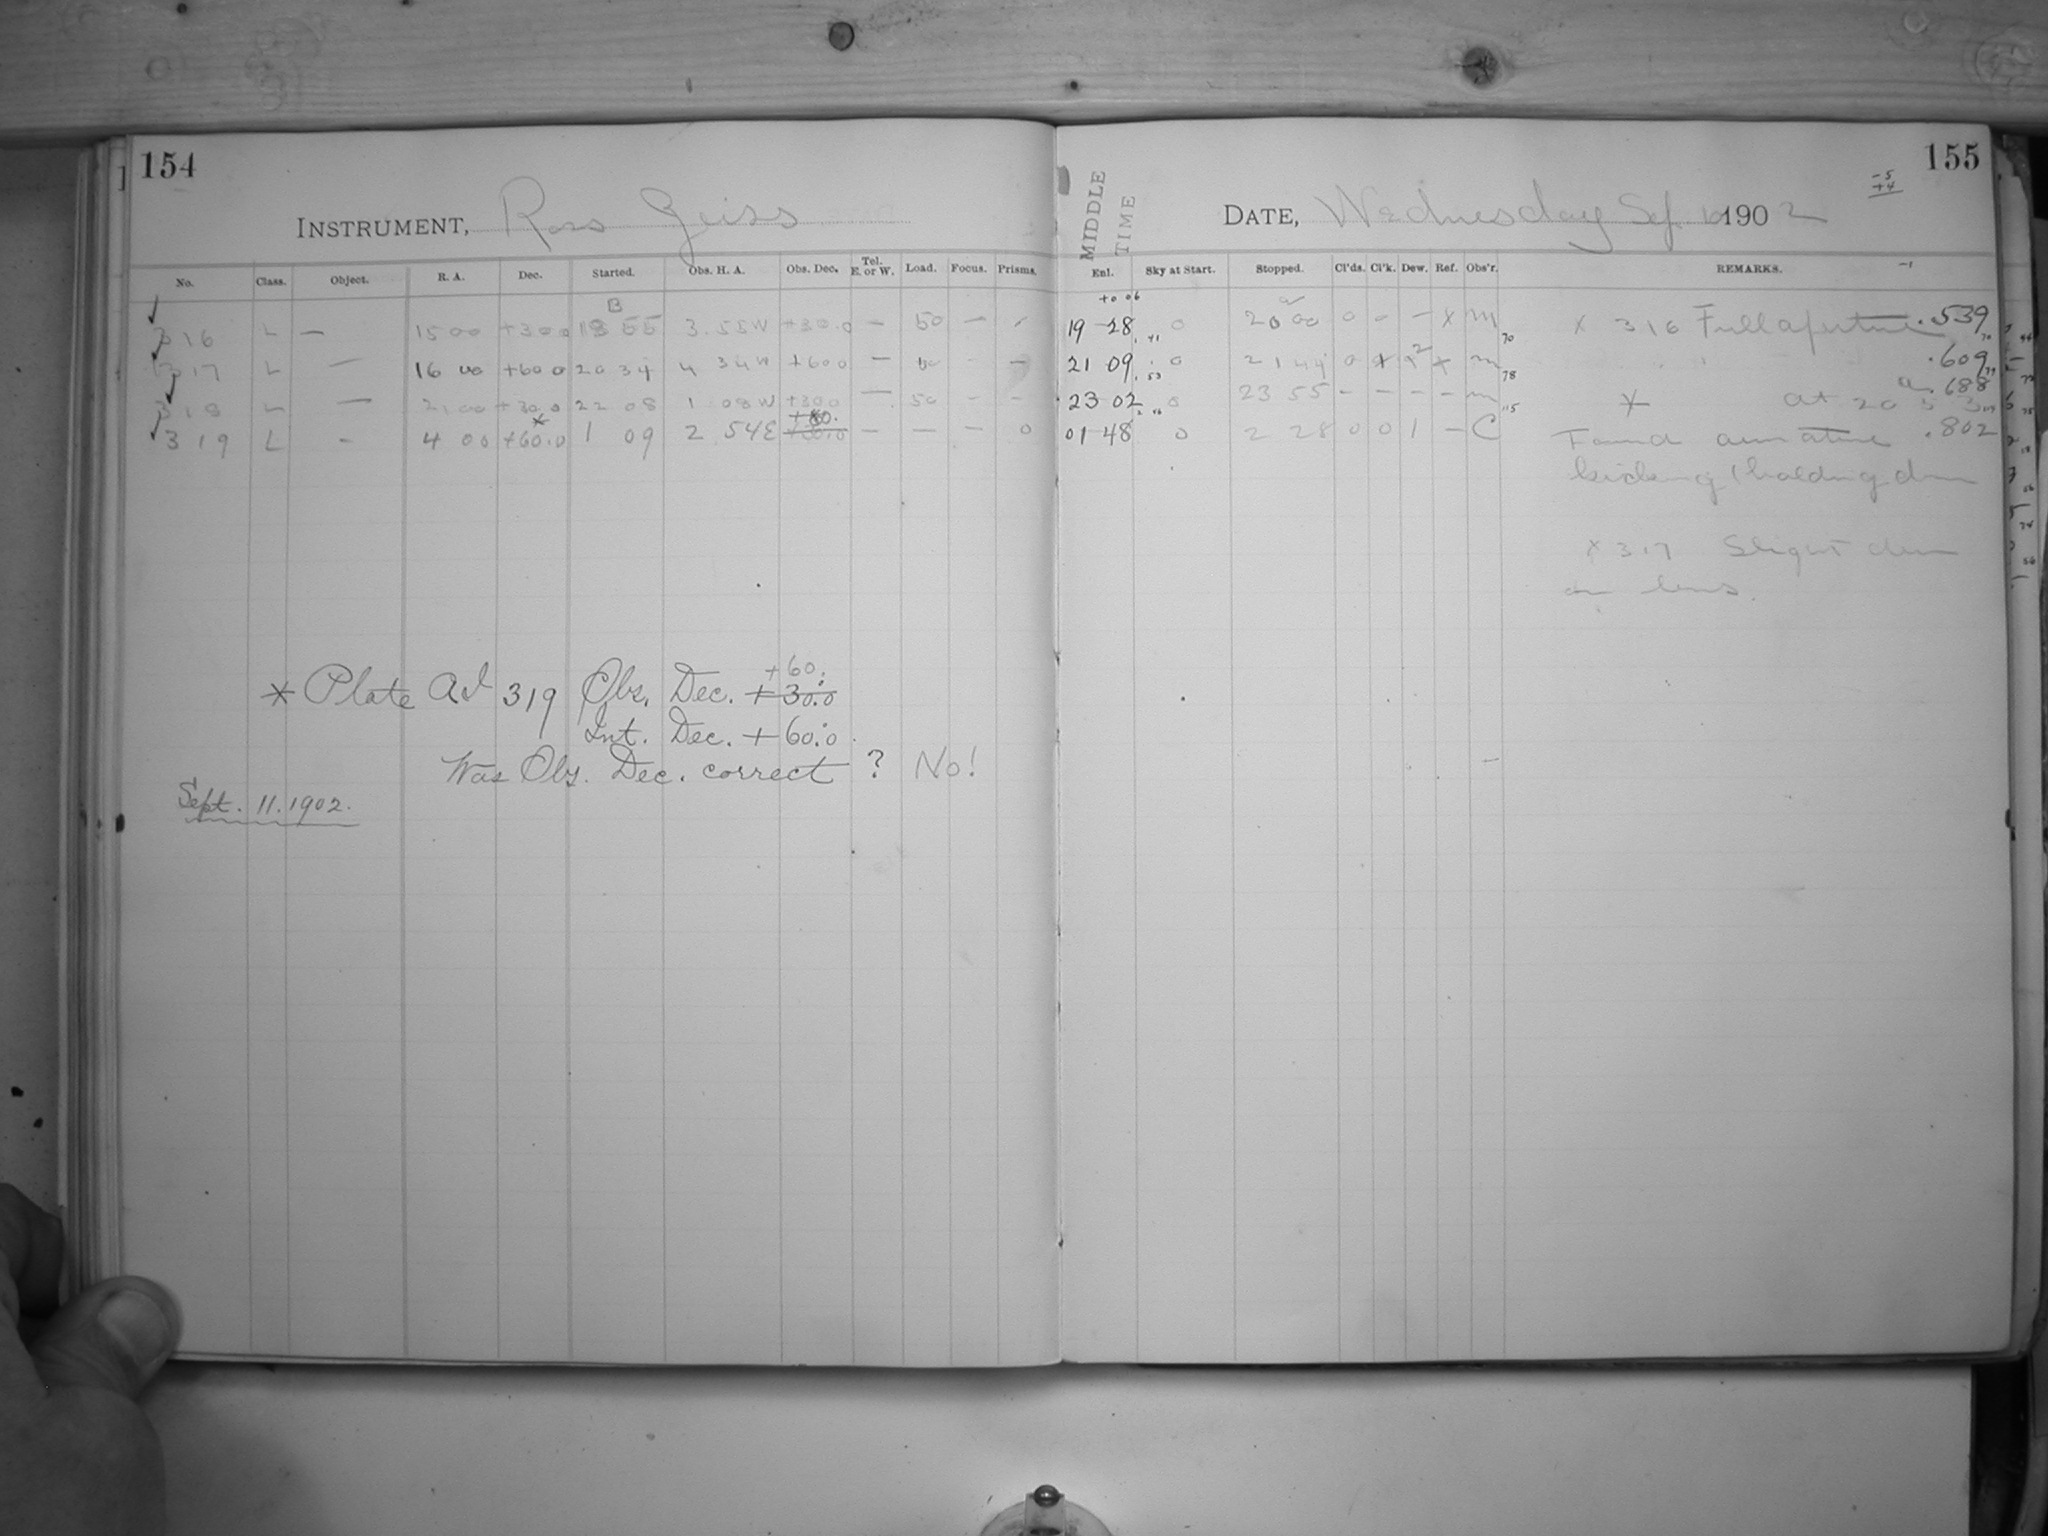 154
INSTRUMENT, Ross Geiss
No. Class. Object. R. A. Dec. Started. Obs. H. A. Obs. Dec. Tel. E. or W. Load. Focus. Prisms.
B
316 L — 15 00 +30.0 18 55 3.55W +30.0 — 50 —
317 L — 16 00 +60.0 20 34 4 34W +60.0 — —
318 L — 21 00 +30.0 22 08 1 08W +30.0 — 50 - -
+60.
319 L - 4 00 +60.0 1 09 2 54E — — — 0
* Plate 319 Obs. Dec. +30.0 +60.
Int. Dec. +60.0
Was Obs. Dec. correct ? No!
Sept. 11. 1902.
155
-5
+4
MIDDLE TIME
DATE, Wednesday Sep 10 1902
Enl. Sky at Start. Stopped. Cl'ds. Cl'k. Dew. Ref. Obs'r. REMARKS.
-1
+0 06
19 28 .41 0 20 00 0 0 - x m 70 x 316 Full aperture .539
21 09 .53 0 21 44 0 x 2 x m 78 .609
23 02 0 23 55 - - - - m 115 x at 20 53 .688
01 48 0 2 28 0 0 1 - C Found armature .802
kicking (holding dm
x 317 Slight dew
on lens.